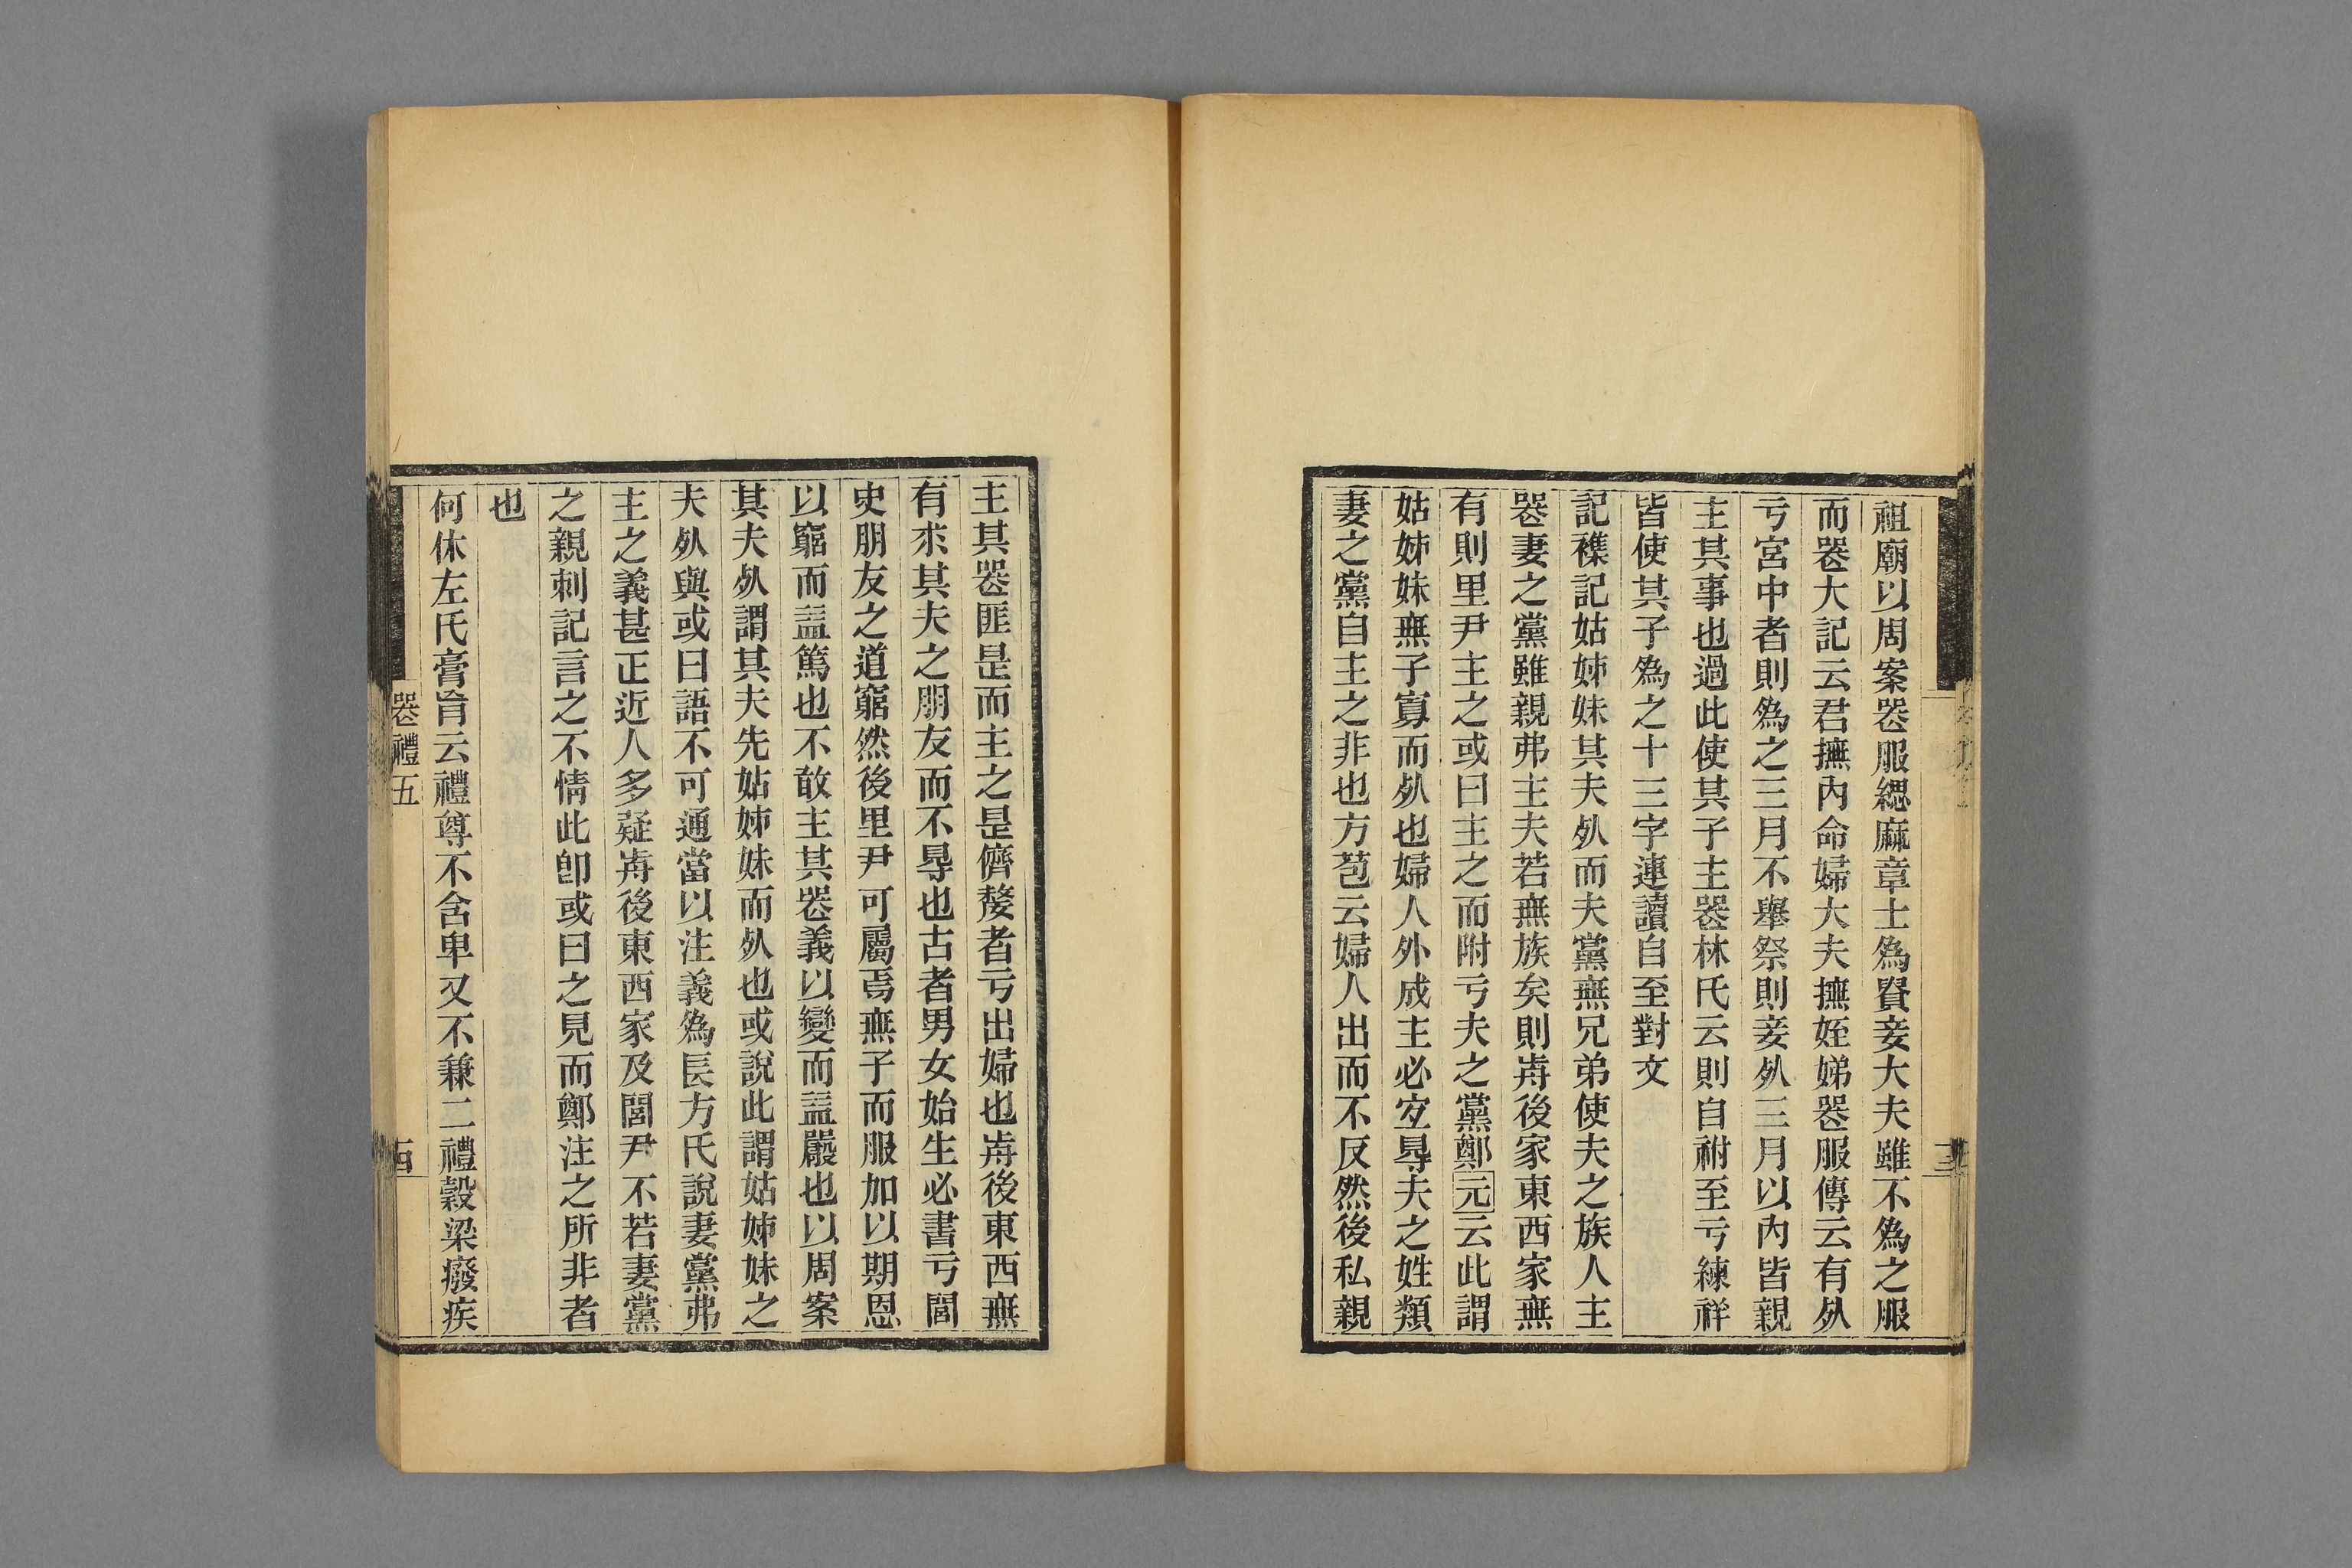 祖廟以周案喪服緦麻章士爲貴妾大夫雖不爲之服
而喪大記云君撫內命婦大夫撫姪娣喪服傳云有死
亏宮中者則爲之三月不舉祭則妾死三月以內皆親
主其事也過此使其子主喪林氏云則自祔至亏練祥
皆使其子爲之十三字連讀自至對文
記襍記姑姊妹其夫死而夫黨無兄弟使夫之族人主
喪妻之黨雖親弗主夫若無族矣則歬後家東西家無
有則里尹主之或曰主之而附亏夫之黨鄭元云此謂
姑姊妹無子寡而死也婦人外成主必宐㝵夫之姓類
妻之黨自主之非也方苞云婦人出而不反然後私親
主其喪匪昰而主之昰儕嫠者亏出婦也歬後東西無
有求其夫之朋友而不㝵也古者男女始生必書亏閭
史朋友之道窮然後里尹可屬焉無子而服加以期恩
以窮而益篤也不敢主其喪義以變而益嚴也以周案
其夫死謂其夫先姑姊妹而死也或說此謂姑姊妹之
夫死與或曰語不可通當以注義爲長方氏說妻黨弗
主之義甚正近人多疑歬後東西家及閭尹不若妻黨
之親刺記言之不情此卽或曰之見而鄭注之所非者
也
何休左氏膏肓云禮尊不含卑又不兼二禮穀梁癈疾
喪禮五